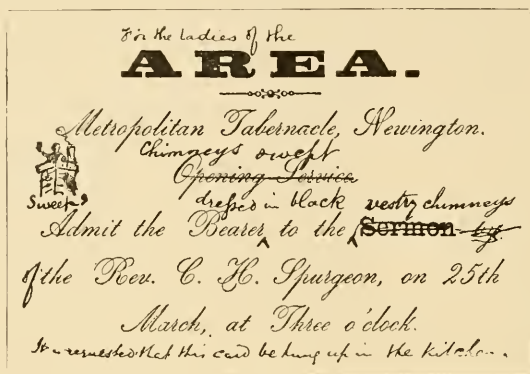 For the ladies of the
AREA.
Metropolitan Tabernacle, Newington.
Chimneys swept
Opening Service
Sweep
dressed in black vestry chimneys
Admit the Bearer to the Sermon by
of the Rev. C. H. Spurgeon, on 25th
March, at Three o'clock.
It is requested that this card be hung up in the kitchen.